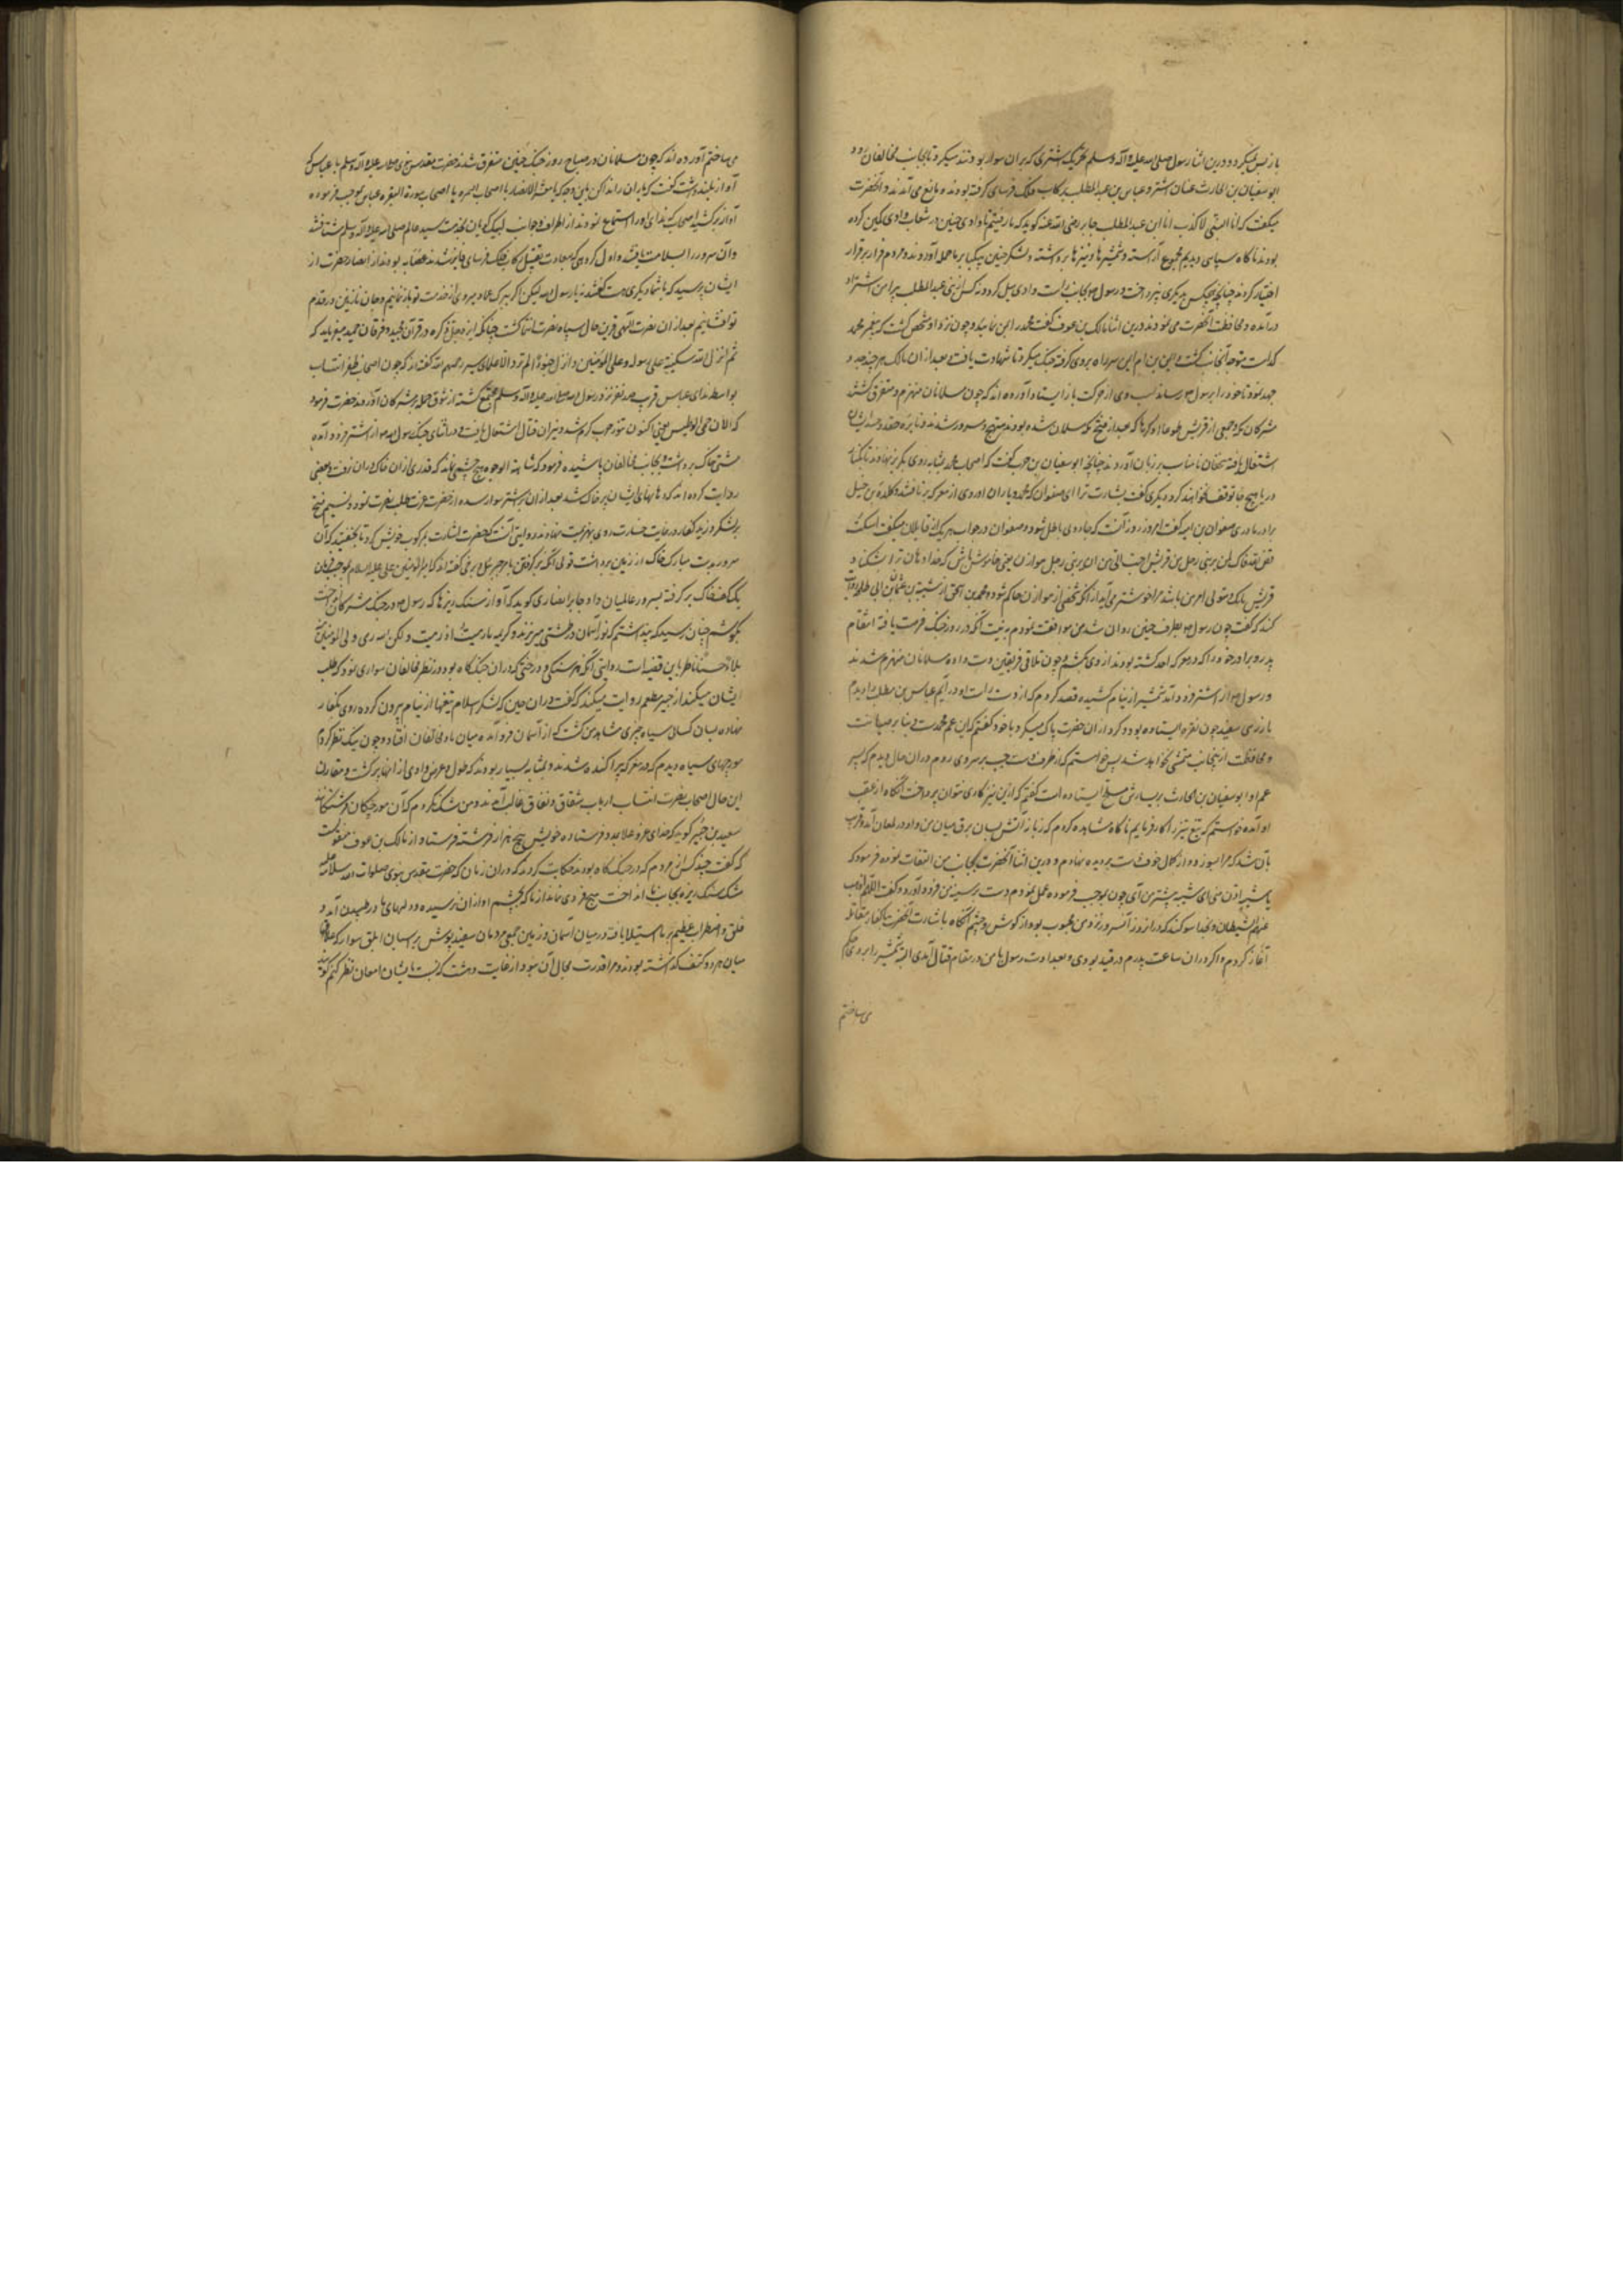 باز پس نمیگردد و درین اثنا رسول صلی الله علیه و آله و سلم تحریک شتری که بران سوار بودند میکرد تا بجانب مخالفان رود و
ابوسفیان بن الحارث عنان استر و عباس بن عبدالمطلب رکاب فلک فرسای گرفته بودند و مانع می آمدند و آنحضرت
میگفت که انا النبی لا کذب انا ابن عبدالمطلب جابر رضی الله عنه گوید که ما رفتیم تا وادی حنین در شعاب وادی کمین کرده
بودند ناگاه سپاهی دیدیم مجموع آراسته و شمشیرها و نیزها برداشته و لشکر حنین بیکبار بر ما حمله آوردند و مردم فرار بر قرار
اختیار کردند چنانچه هیچکس بدیگری نپرداخت و رسول بجانب راست وادی میل کرد و کس از بنی عبدالمطلب پیرامن استر او
درآمده و محافظت آنحضرت می نمودند درین اثنا مالک بن عوف گفت محمد را بمن نمایید و چون نزد او مشخص گشت که پیغمبر محمد
کدامست متوجه آنجانب گشت ایمن بن ام ایمن سر راه بر وی گرفته جنگ میکرد تا شهادت یافت بعد از ان مالک هر چند جد و
جهد نمود تا خود را برسول رساند اسب وی از حرکت باز ایستاد و آورده اند که چون مسلمانان منهزم و متفرق گشتند
مشرکان مکه و جمعی از قریش طوعا او کرها که بعد از فتح مکه مسلمان شده بودند مبتهج و مسرور شدند و نایره حقد و حسد ایشان
اشتعال یافته سخنان نامناسب بر زبان آوردند چنانچه ابوسفیان بن حرب گفت که اصحاب محمد بمثابه روی بگریز نهادند تا بکنار
دریا هیچ جا توقف نخواهند کرد و دیگری گفت بشارت ترا ای صفوان که محمد و یاران او روی از معرکه برتافتند و کلده بن حنبل
برادر مادری صفوان بن امیه گفت امروز روز آنست که جادوی باطل شود و صفوان در جواب هر یک از قایلان میگفت اسکت
فض الله فاک لان یربنی رجل من قریش احب الی من ان یربنی رجل من هوازن یعنی خاموش باش که خدا دهان ترا بشکند و
قریش مالک و متولی امر من باشد مرا خوشتر می آید از آنکه شخصی از هوازن حاکم شود و محمد بن اسحق از شیبة بن عثمان ابی طلحه روایت
کند که گفت چون رسول بطرف حنین روان شد من موافقت نمودم به نیت آنکه در روز جنگ فرصت یافته انتقام
پدر و برادر خود را که در معرکه احد کشته بودند از وی بکشم و چون تلاقی فریقین دست داده مسلمانان منهزم شدند
و رسول از استر فرود آمد شمشیر از نیام کشیده قصد کردم که از دست راست او درآیم عباس بن مطلب را دیدم
با زرهی سفید چون نقره ایستاده بود و گرد از ان حضرت پاک میکرد با خود گفتم که این عم محمدست و بنا بر صیانت
و محافظت از آنجانب متمشی نخواهد شد پس خواستم که از طرف دست چپ بر سر وی روم دران حال دیدم که پسر
عم او ابوسفیان بن الحارث بر یسارش مسلح ایستاده است گفتم که ازین نیز کاری نتوان پرداخت آنگاه از عقب
او آمده خواستم که تیغ تیز را کار فرمایم ناگاه مشاهده کردم که زبانه آتش بسان برق میان من و او در لمعان آمد و قریب
بآن شد که مرا بسوزد و از کمال خوف دست بر دیده نهادم و درین اثنا آنحضرت بجانب من التفات نموده فرمود که
یا شیب ادن منی ای شیبه پیشتر من آی چون بموجب فرموده عمل نمودم دست بر سینه من فرود آورد و گفت اللهم اذهب
عنهم الشیطان و بخدا سوگند که در انروز آنسرور نزد من محبوب بود از گوش و چشم آنگاه باشارت آنحضرت با کفار مقاتله
آغاز کردم و اگر در ان ساعت پدرم در قید بودی و بعداوت رسول با من در مقام قتال آمدی البته شمشیر را بروی حکم
می ساختم
می ساختم آورده اند که چون مسلمانان در صباح روز جنگ حنین متفرق شدند حضرت مقدس نبوی صلی الله علیه و آله و سلم با عباس که
آواز بلند داشت گفت که یاران را ندا کن باین وجه که یا معشر الانصار یا اصحاب السمره یا اصحاب سورة البقره عباس بموجب فرموده
آواز برکشید اصحاب که ندای او را استماع نمودند از اطراف و جوانب لبیک گویان بخدمت سید عالم صلی الله علیه و آله و سلم شتافتند
و آن سرور را بسلامت یافتند و اول گروهی که بسعادت تقبیل رکاب فلک فرسای فایز شدند بودند از انصار حضرت از
ایشان پرسید که با شما دیگری هست گفتند نه یا رسول الله لیکن اگر ببرک الغماد میروی از خدمت تو باز نمانیم و جان نازنین در قدم
تو افشانیم بعد از ان نصرت الهی قرین حال سپاه نصرت انتما گشت چنانکه ایزد جل ذکره در قرآن مجید و فرقان حمید میفرماید که
ثم انزل الله سکینته علی رسوله و علی المؤمنین و انزل جنودا لم تروها علمای سیر رحمهم الله گفته اند که چون اصحاب ظفر انتساب
بواسطه ندای عباس قرب صد نفر نزد رسول الله صلی الله علیه و آله و سلم مجتمع گشته از شوق حمله بر مشرکان آوردند حضرت فرمود
که الان حمی الوطیس یعنی اکنون تنور حرب گرم شد و نیران قتال اشتعال یافت و در اثنای جنگ رسول از استر فرود آمده
مشتی خاک برداشت و بجانب مخالفان پاشیده فرمود که شاهت الوجوه هیچ چشمی نماند که قدری از ان خاک دران نرفت و بعضی
روایت کرده اند که دهانهای ایشان پر خاک شد بعد از ان بر استر سوار شده از حضرت عزت طلب نصرت نمود و نسیم فتح
بر لشکر وزید کفار در غایت خسارت روی بهزیمت نهادند و روایتی آنست که حضرت اشارت بمرکوب خویش کرد تا بخفتید که آن
سرور بدست مبارک خاک از زمین برداشت
یک کف خاک برگرفته بسرور عالمیان داد جابر انصاری گوید که آواز سنگ ریزها که رسول در جنگ مشرکان انداخت
بگوشم چنان رسید که پنداشتم که از آسمان در طشتی میریزند و کریمه ما رمیت اذ رمیت و لکن الله رمی و لیبلی المؤمنین منه
بلاء حسنا ناظر باین قضیه است و روایتی آنکه هر سنگی و درختی که دران جنگ گاه بود در نظر مخالفان سواری نمود که طلب
ایشان میکند از جبیر مطعم روایت میکنند که گفت دران حین که لشکر اسلام تیغها از نیام بیرون کرده روی بکفار
نهاده بسان کسائی سیاه چیزی مشاهد من گشت که از آسمان فرود آمده میان ما و مخالفان افتاد و چون نیک نظر کردم
مورچهای سیاه دیدم که در معرکه پراکنده شدند و بمثابه بسیار بودند که طول و عرض وادی از انها پر گشت و مقارن
این حال اصحاب نصرت انتساب ارباب شقاق و نفاق غالب آمدند و من شک نکردم که آن مورچگان فرشتگانند
سعید بن جبیر گوید که خدای عز و علا بمدد فرستاده خویش پنج هزار فرشته فرستاد و از مالک بن عوف منقولست
که گفت چند کس از مردم که در جنگ گاه بودند حکایت کردند که دران زمان که حضرت مقدس نبوی صلوات الله و سلامه علیه
مشک سنگ ریزه بجانب ما انداخت هیچ فردی نماند از ما که بچشم او از ان نرسیده و دلهای ما در طپیدن آمد و
قلق و اضطراب عظیم بر ما استیلا یافت و در میان آسمان و زمین جمعی مردمان سفید پوش بر اسبان ابلق سوار که علاقه
میان هر دو کتف گذاشته بودند و مرا قدرت مجال آن نبود از غایت دهشت که بایشان امعان نظر کنم گویند